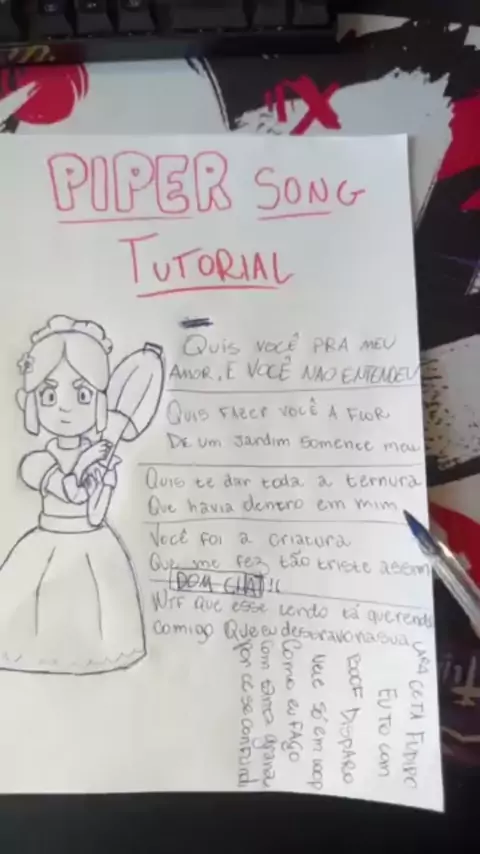 PIPER SONG
TUTORIAL
QUIS VOCÊ PRA MEU
AMOR, E VOCÊ NAO ENTENDEU
QUIS FAZER VOCÊ A FLOR
DE UM JARDIM SOMENCE MEU
Quis te dar toda a ternura
Que havia dentro em mim
Você foi a criatura
Que me fez tão triste assim
WTF que esse lendo tá querendo
comigo Que eu
CARA CE TA FUDIDO
EU TO COM
BOOF DISPARO
Você só em loop
Como eu FAÇO
com tanta grana